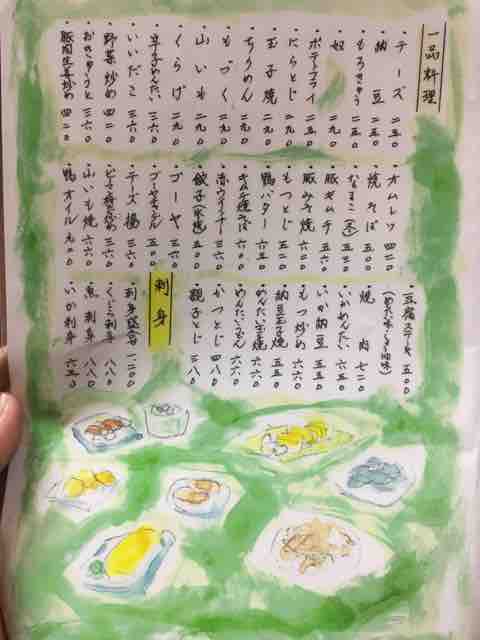 一品料理
チーズ 二五〇
納豆 二五〇
もろきゅう 二五〇
奴 二九〇
ポテトフライ 二五〇
にらとじ 二九〇
玉子焼 二九〇
ちりめん 二九〇
もづく 二九〇
山いも 二九〇
くらげ 二九〇
辛子めんたい 三六〇
いいだこ 三六〇
野菜炒め 四二〇
おきゅうと 三六〇
豚肉生姜炒め 四二〇
オムレツ 四二〇
焼そば 五五〇
なまこ(冬) 五五〇
豚キムチ 六五〇
豚みそ焼 六六〇
もつとじ 五二〇
鴨バター 六五〇
キムチ焼そば 六六〇
赤ウインナー 三六〇
餃子(水・焼) 五〇〇
ゴーヤ 三六〇
ゴーヤチャンプル 五五〇
チーズ揚 三六〇
山いも焼 六六〇
鴨オイル 九二〇
豆腐ステーキ 五五〇
(めんたい味・しょうゆ味)
焼肉 七二〇
いかめんたい 六五〇
いか納豆 六五〇
もつ炒め 六六〇
納豆玉子焼 五五〇
めんたい玉子焼 六六〇
かつとじ 四八〇
親子とじ 三八〇
刺身
刺身盛合 一二〇〇
くじら刺身 八八〇
魚刺身 八八〇
いか刺身 六五〇